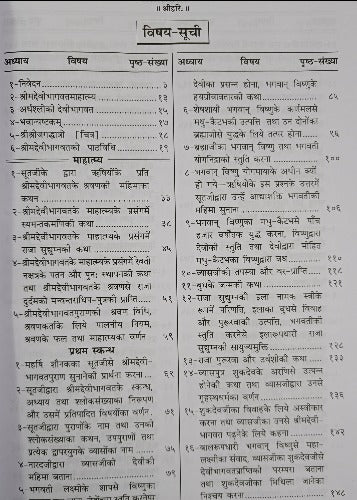 ॥ श्रीहरि: ॥
विषय-सूची
अध्याय विषय पृष्ठ-संख्या
१-निवेदन ७
२-श्रीमद्देवीभागवतमाहात्म्य १३
३-अर्धश्लोकी देवीभागवत १५
४-भवान्यष्टकम् १७
५-श्रीश्रीजगद्धात्री [चित्र] १८
६-श्रीमद्देवीभागवतकी पाठविधि १९
माहात्म्य
१-सूतजीके द्वारा ऋषियोंके प्रति
श्रीमद्देवीभागवतके श्रवणकी महिमाका
कथन ३३
२-श्रीमद्देवीभागवतके माहात्म्यके प्रसंगमें
स्यमन्तकमणिकी कथा ३८
३-श्रीमद्देवीभागवतके माहात्म्यके प्रसंगमें
राजा सुद्युम्नकी कथा ४५
४-श्रीमद्देवीभागवतके माहात्म्यके प्रसंगमें रेवती
नक्षत्रके पतन और पुन: स्थापनकी कथा
तथा श्रीमद्देवीभागवतके श्रवणसे राजा
दुर्दमको मन्वन्तराधिप-पुत्रकी प्राप्ति ५१
५-श्रीमद्देवीभागवतपुराणकी श्रवण विधि,
श्रवणकर्ताके लिये पालनीय नियम,
श्रवणके फल तथा माहात्म्यका वर्णन ५९
प्रथम स्कन्ध
१-महर्षि शौनकका सूतजीसे श्रीमद्देवी-
भागवतपुराण सुनानेकी प्रार्थना करना ६९
२-सूतजीद्वारा श्रीमद्देवीभागवतके स्कन्ध,
अध्याय तथा श्लोकसंख्याका निरूपण
और उसमें प्रतिपादित विषयोंका वर्णन ७१
३-सूतजीद्वारा पुराणोंके नाम तथा उनकी
श्लोकसंख्याका कथन, उपपुराणों तथा
प्रत्येक द्वापरयुगके व्यासोंका नाम ७५
४-नारदजीद्वारा व्यासजीको देवीकी
महिमा बताना ७९
५-भगवती लक्ष्मीके शापसे विष्णुका
देवीका प्रसन्न होना, भगवान् विष्णुके
हयग्रीवावतारकी कथा ८५
६-शेषशायी भगवान् विष्णुके कर्णमलसे
मधु-कैटभकी उत्पत्ति तथा उन दोनोंका
ब्रह्माजीसे युद्धके लिये तत्पर होना ९६
७-ब्रह्माजीका भगवान् विष्णु तथा भगवती
योगनिद्राकी स्तुति करना १००
८-भगवान् विष्णु योगमायाके अधीन क्यों
हो गये-ऋषियोंके इस प्रश्नके उत्तरमें
सूतजीद्वारा उन्हें आद्याशक्ति भगवतीकी
महिमा सुनाना १०६
९-भगवान् विष्णुका मधु-कैटभसे पाँच
हजार वर्षोंतक युद्ध करना, विष्णुद्वारा
देवीकी स्तुति तथा देवीद्वारा मोहित
मधु-कैटभका विष्णुद्वारा वध ११०
१०-व्यासजीकी तपस्या और वर-प्राप्ति ११८
११-बुधके जन्मकी कथा १२१
१२-राजा सुद्युम्नकी इला नामक स्त्रीके
रूपमें परिणति, इलाका बुधसे विवाह
और पुरूरवाकी उत्पत्ति, भगवतीकी
स्तुति करनेसे इलारूपधारी राजा
सुद्युम्नकी सायुज्यमुक्ति १२८
१३-राजा पुरूरवा और उर्वशीकी कथा १३३
१४-व्यासपुत्र शुकदेवके अरणिसे उत्पन्न
होनेकी कथा तथा व्यासजीद्वारा उनसे
गृहस्थधर्मका वर्णन १३६
१५-शुकदेवजीका विवाहके लिये अस्वीकार
करना तथा व्यासजीका उनसे श्रीमद्देवी-
भागवत पढ़नेके लिये कहना १४२
१६-बालरूपधारी भगवान् विष्णुसे महा-
लक्ष्मीका संवाद, व्यासजीका शुकदेवजीसे
देवीभागवतप्राप्तिकी परम्परा बताना
तथा शुकदेवजीका मिथिला जानेका
निश्चय करना १४८